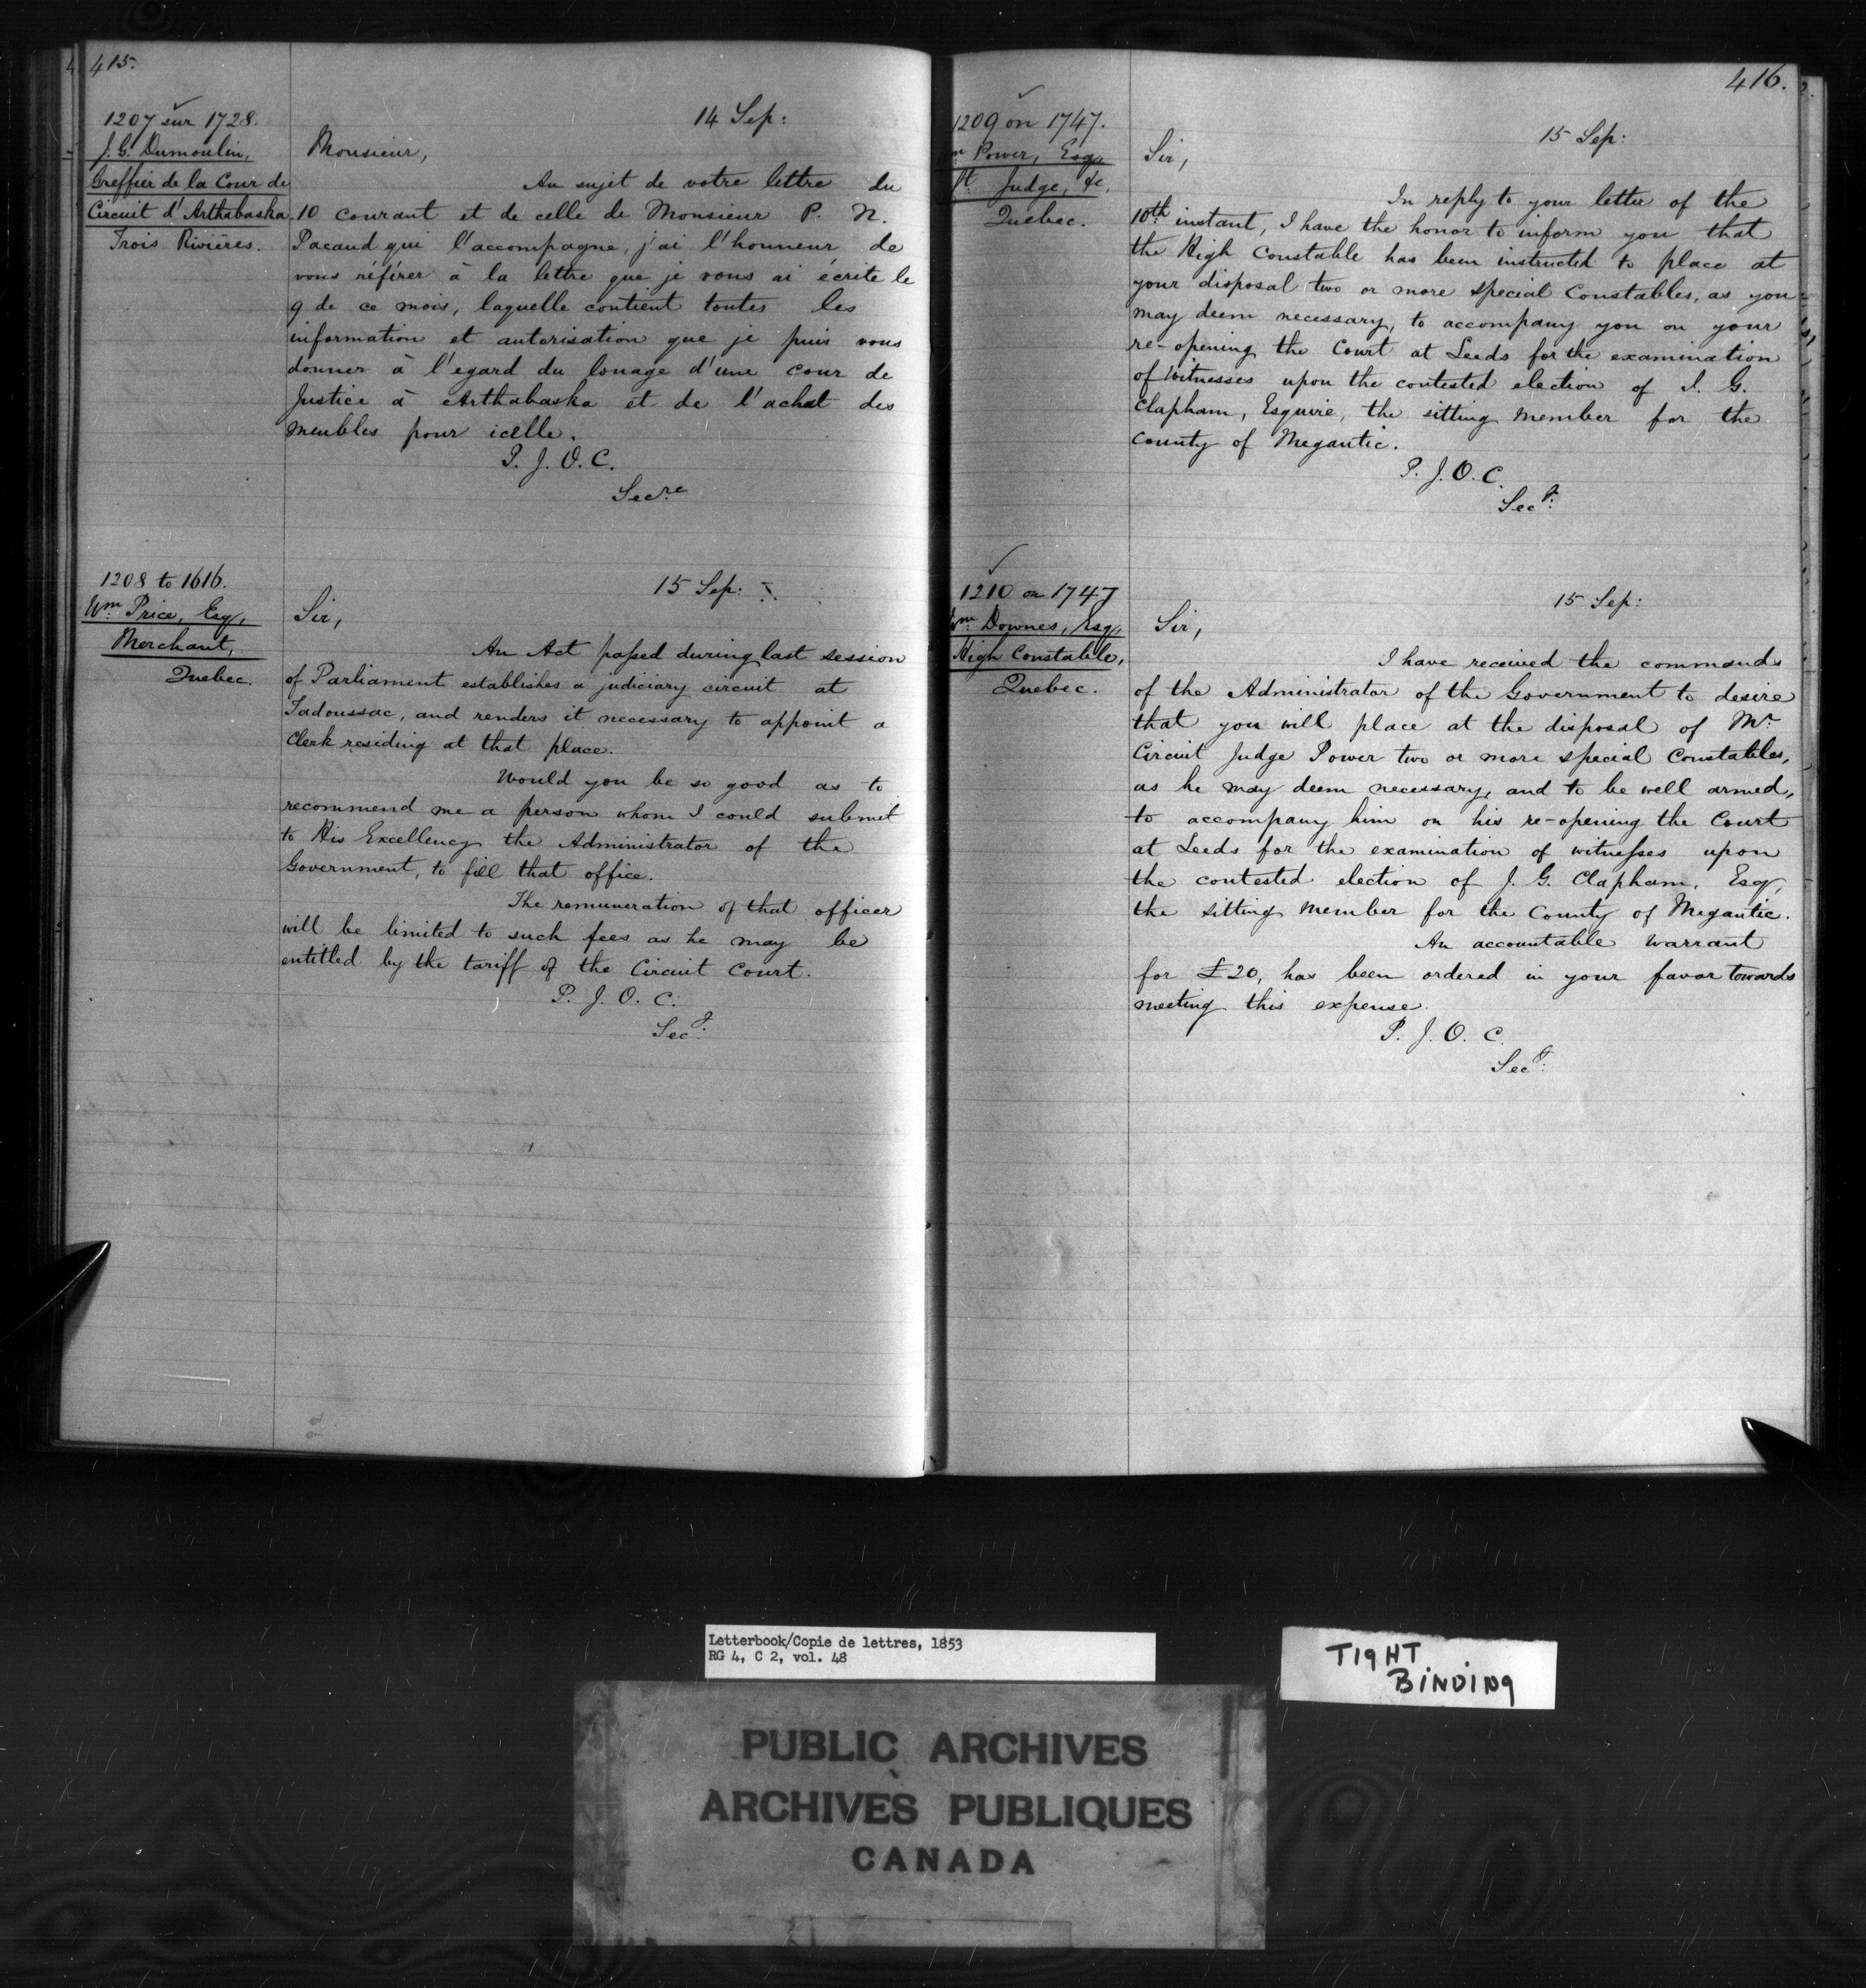 415.
1207 sur 1728.
J. G. Dumoulin,
Greffier de la Cour de
Circuit d'Arthabaska.
Trois Rivières.
14 Sep:
Monsieur,
Au sujet de votre lettre du
10 courant et de celle de Monsieur P. N.
Pacaud qui l'accompagne, j'ai l'honneur de
vous référer à la lettre que je vous ai écrite le
9 de ce mois, laquelle contient toutes les
information et autorisation que je puis vous
donner à l'egard du louage d'une cour de
Justice à Arthabaska et de l'achat des
meubles pour icelle.
P. J. O. C.
Secre
1208 to 1616.
Wm. Price, Esq,
Merchant,
Quebec.
15 Sep:
Sir,
An Act passed during last session
of Parliament establishes a judiciary circuit at
Tadoussac, and renders it necessary to appoint a
Clerk residing at that place.
Would you be so good as to
recommend me a person whom I could submit
to His Excellency the Administrator of the
Government, to fill that office.
The remuneration of that officer
will be limited to such fees as he may be
entitled by the tariff of the Circuit Court.
P. J. O. C.
Secy:
416.
1209 on 1747.
m Power, Esq,
t Judge, &c.
Quebec.
15 Sep:
Sir,
In reply to your letter of the
10th instant, I have the honor to inform you that
the High Constable has been instructed to place at
your disposal two or more special Constables, as you
may deem necessary, to accompany you on your
re-opening the Court at Leeds for the examination
of Witnesses upon the contested election of J. G.
Clapham, Esquire, the sitting member for the
County of Megantic.
P. J. O. C.
Secy:
1210 on 1747
Wm. Downes, Esq,
High Constable,
Quebec.
15 Sep:
Sir,
I have received the commands
of the Administrator of the Government to desire
that you will place at the disposal of Mr.
Circuit Judge Power two or more special Constables,
as he may deem necessary, and to be well armed,
to accompany him on his re-opening the Court
at Leeds for the examination of witnesses upon
the contested election of J. G. Clapham, Esq,
the sitting member for the County of Megantic.
An accountable warrant
for £20, has been ordered in your favor towards
meeting this expense.
P. J. O. C.
Secy:
Letterbook/Copie de lettres, 1853
RG 4, C 2, vol. 48
TIGHT
BINDING
PUBLIC ARCHIVES
ARCHIVES PUBLIQUES
CANADA